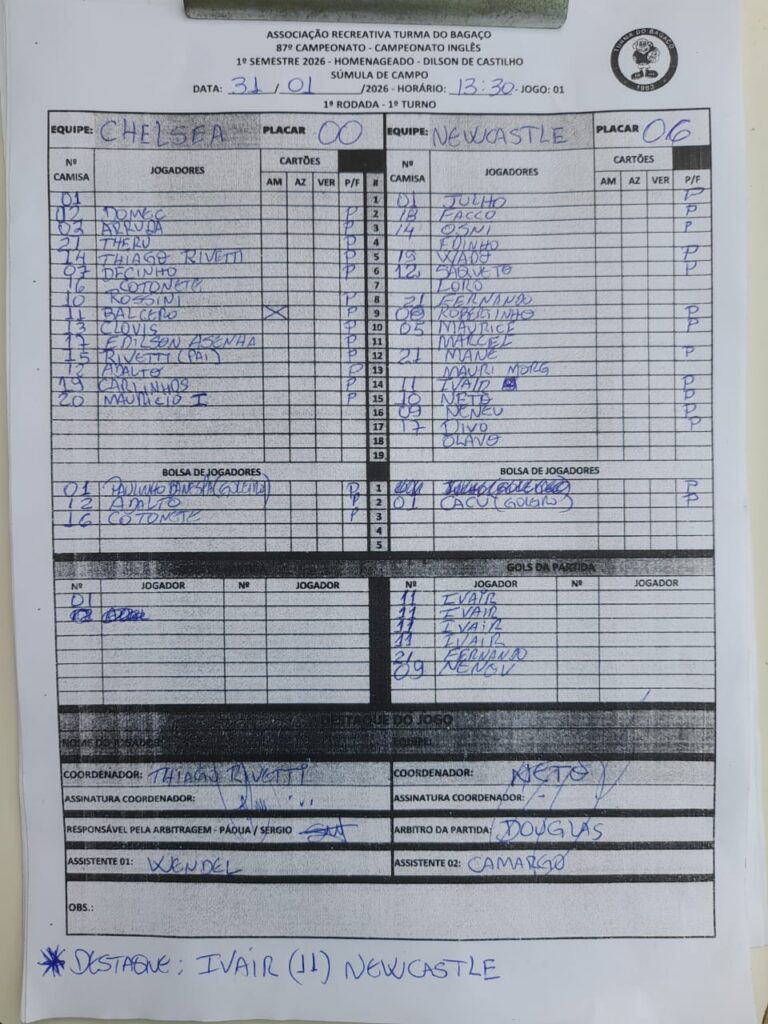 ASSOCIAÇÃO RECREATIVA TURMA DO BAGAÇO
87º CAMPEONATO - CAMPEONATO INGLÊS
1º SEMESTRE 2026 - HOMENAGEADO - DILSON DE CASTILHO
SÚMULA DE CAMPO
DATA: 31 / 01 /2026 - HORÁRIO: 13:30 - JOGO: 01
1ª RODADA - 1º TURNO
TURMA DO BAGAÇO
1982
EQUIPE: CHELSEA PLACAR 00 EQUIPE: NEWCASTLE PLACAR 06
Nº CAMISA JOGADORES CARTÕES Nº CAMISA JOGADORES CARTÕES
AM AZ VER P/F # AM AZ VER P/F
01 1 01 JULHO P
02 DOMEC P 2 18 FACCO P
03 ARRUDA P 3 14 OSNI P
21 THERU P 4 EDINHO
14 THIAGO RIVETTI P 5 19 WADO P
07 DECINHO P 6 12 SAQUETO P
16 COTONETE 7 LORO
10 ROSSINI P 8 21 FERNANDO
11 BALCERO X P 9 08 ROBERSINHO P
13 CLOVIS P 10 05 MAURICE P
17 EDILSON ASENHA P 11 MARCEL
15 RIVETTI (PAI) P 12 21 MANE P
12 ADALTO P 13 MAURI MORG
19 CARLINHOS P 14 11 IVAIR P
20 MAURICIO I P 15 10 NETO P
16 09 NENEU P
17 17 DIVO P
18 OLAVO
19
BOLSA DE JOGADORES BOLSA DE JOGADORES
01 PAULINHO BANESPA (GOLEIRO) P 1 P
12 ADALTO P 2 01 CACU (GOLEIRO) P
16 COTONETE P 3
4
5
GOLS DA PARTIDA
Nº JOGADOR Nº JOGADOR Nº JOGADOR Nº JOGADOR
01 11 IVAIR
11 IVAIR
11 IVAIR
11 IVAIR
21 FERNANDO
09 NENEU
DESTAQUE DO JOGO
NOME DO JOGADOR: EQUIPE:
COORDENADOR: THIAGO RIVETTI COORDENADOR: NETO
ASSINATURA COORDENADOR: ASSINATURA COORDENADOR:
RESPONSÁVEL PELA ARBITRAGEM - PÁDUA / SERGIO ARBITRO DA PARTIDA: DOUGLAS
ASSISTENTE 01: WENDEL ASSISTENTE 02: CAMARGO
OBS.:
* DESTAQUE: IVAIR (11) NEWCASTLE